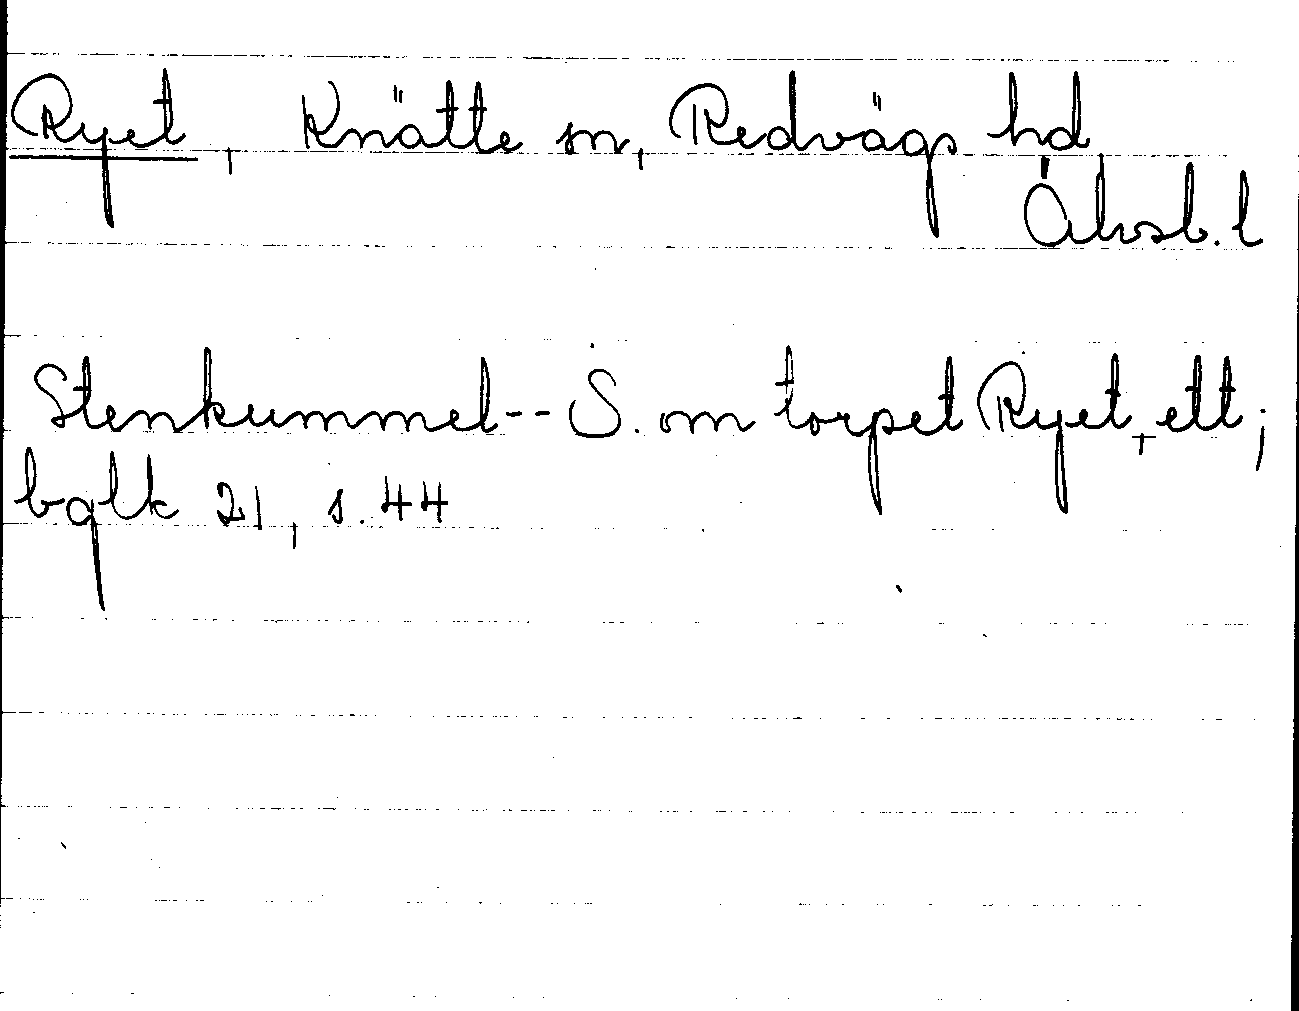 Ryet, Knätte sn, Redvägs hd
Älvsb. l
Stenkummel -- S. om torpet Ryet, ett;
bglk 21, s. 44